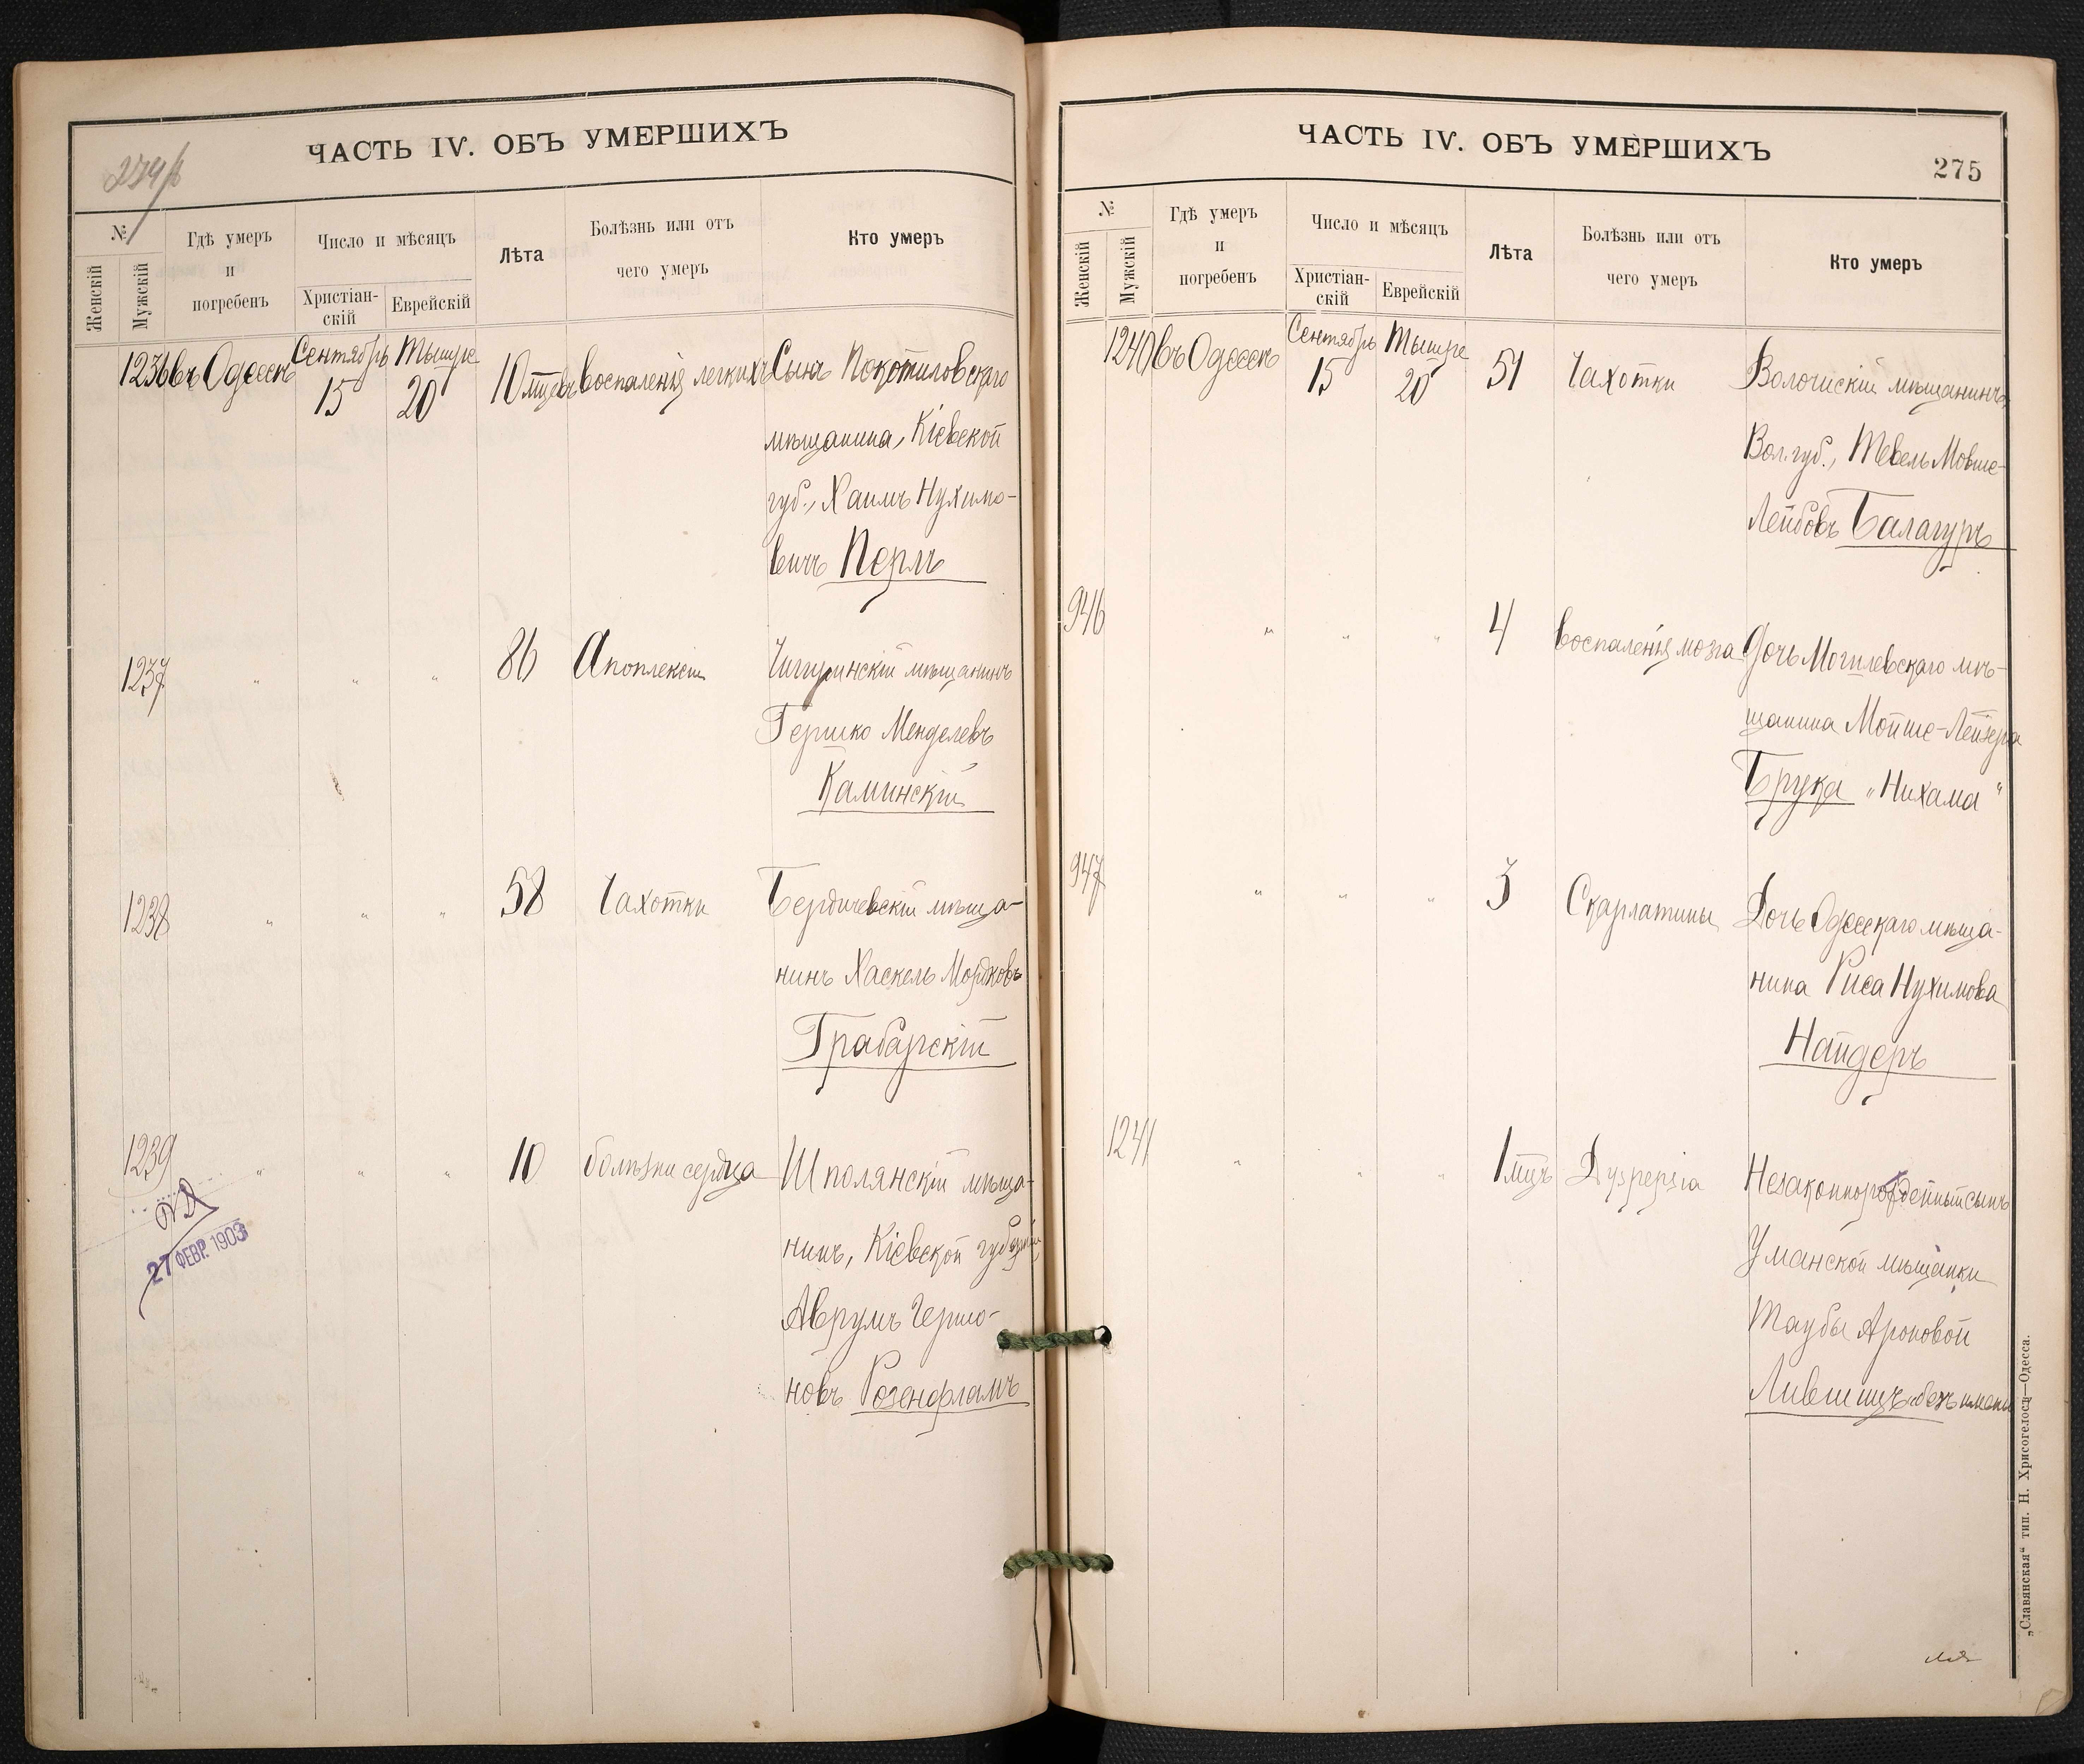 ЧАСТЬ IV. ОБЪ УМЕРШИХЪ
№
Женскій
Мужскій
Гдѣ умеръ
и
погребенъ
Число и мѣсяцъ
Христіан-
скій
Еврейскій
Лѣта
Болѣзнь или отъ
чего умеръ
Кто умеръ
1236 въ Одессѣ Сентябрь 15 Тышре 20 10 мцевъ воспаленія легкихъ Сынъ Покотиловскаго
мѣщанина, Кіевской
губ., Хаимъ Нухимо-
вичъ Перлъ
1237 " " " 86 Апоплексіи Чигиринскій мѣщанинъ
Гершко Менделевъ
Каминскій
1238 " " " 58 Чахотки Бердичевскій мѣща-
нинъ Хаскель Мордковъ
Грабарскій
1239 " " " 10 болѣзни сердца Шполянскій мѣща-
нинъ, Кіевской губерніи
Аврумъ Гершо-
новъ Розенфламъ
27 ФЕВР. 1903
ЧАСТЬ IV. ОБЪ УМЕРШИХЪ
275
№
Женскій
Мужскій
Гдѣ умеръ
и
погребенъ
Число и мѣсяцъ
Христіан-
скій
Еврейскій
Лѣта
Болѣзнь или отъ
чего умеръ
Кто умеръ
1240 въ Одессѣ Сентябрь 15 Тышре 20 51 Чахотки Волочискій мѣщанинъ,
Вол. губ., Тевель Мовше-
Лейбовъ Балагуръ
946 " " " 4 воспаленія мозга Дочь Могилевскаго мѣ-
щанина Мойше-Лейзера
Брука „Нихама"
947 " " " 3 Скарлатины Дочь Одесскаго мѣща-
нина Риса Нухимова
Найдеръ
1241 " " " 1 мцъ Dyspepsia Незаконнорожденный сынъ
Уманской мѣщанки
Таубы Ароновой
Лившицъ „безъ имени
„Славянская“ тип. Н. Хрисогелосъ—Одесса.